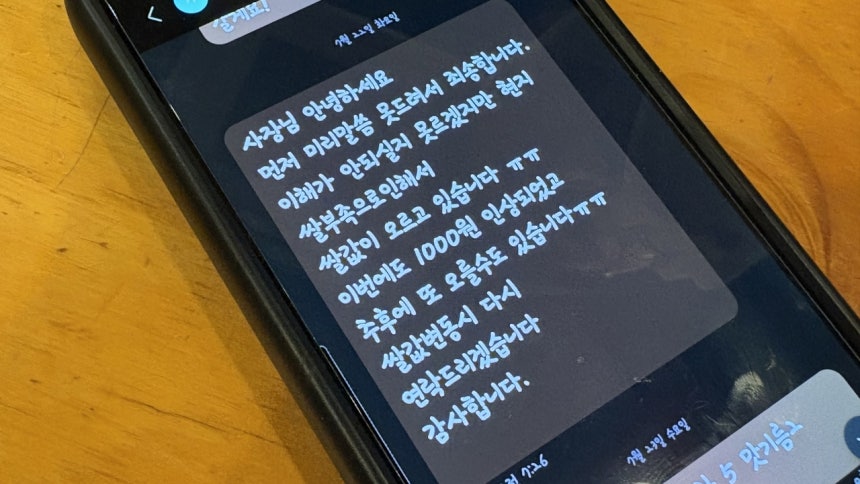 잘게요!
7월 22일 화요일
사장님 안녕하세요
먼저 미리말씀 못드려서 죄송합니다.
이해가 안되실지 못르겠지만 현지
쌀부족으로인해서
쌀값이 오르고 있습니다 ㅠㅠ
이번에도 1000원 인상되었고
추후에 또 오를수도 있습니다ㅠㅠ
쌀값변동시 다시
연락드리겠습니다
감사합니다.
7:26
7월 23일 수요일
5 맛기름2